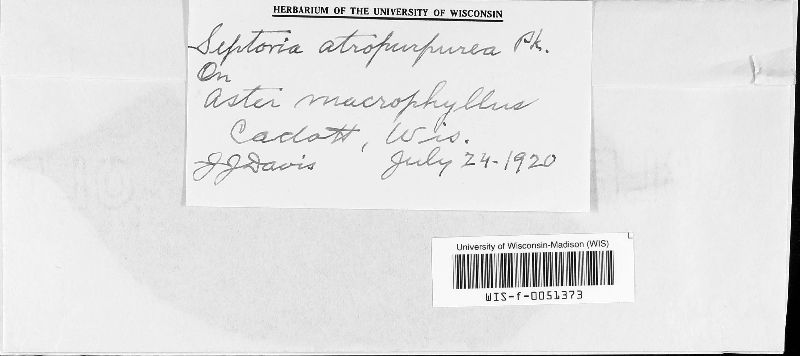 HERBARIUM OF THE UNIVERSITY OF WISCONSIN
Septoria atropurpurea Pk.
On
Aster macrophyllus
Cadott, Wis.
JJDavis July 24-1920
University of Wisconsin-Madison (WIS)
WIS-f-0051373